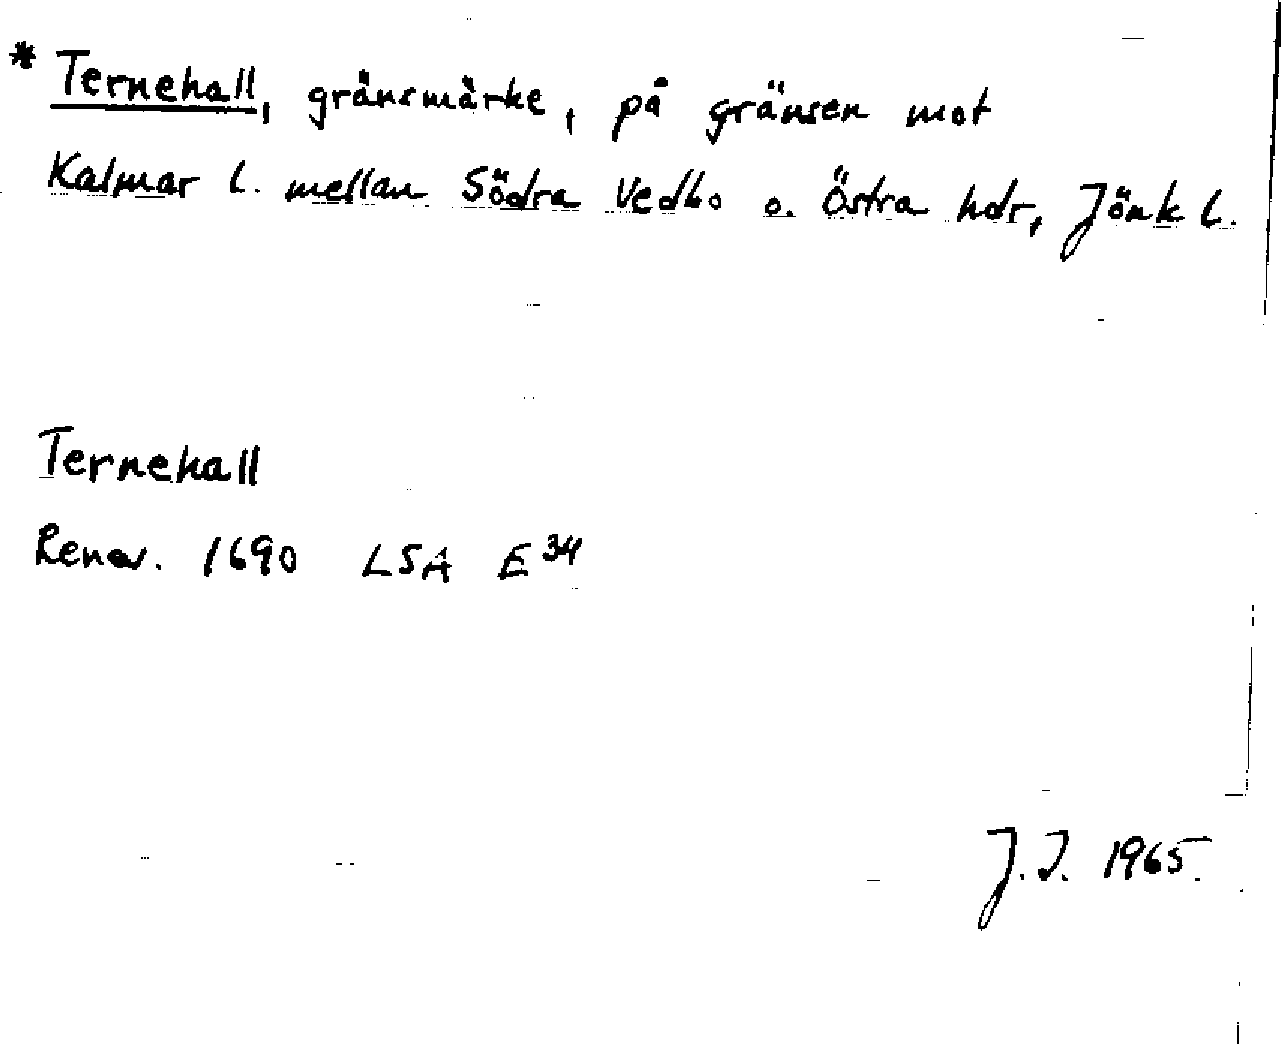 * Ternehall, gränsmärke, på gränsen mot
Kalmar l. mellan Södra Vedbo o. Östra hdr, Jönk l.
Ternehall
Renov. 1690 LSA E 34
J.I. 1965.